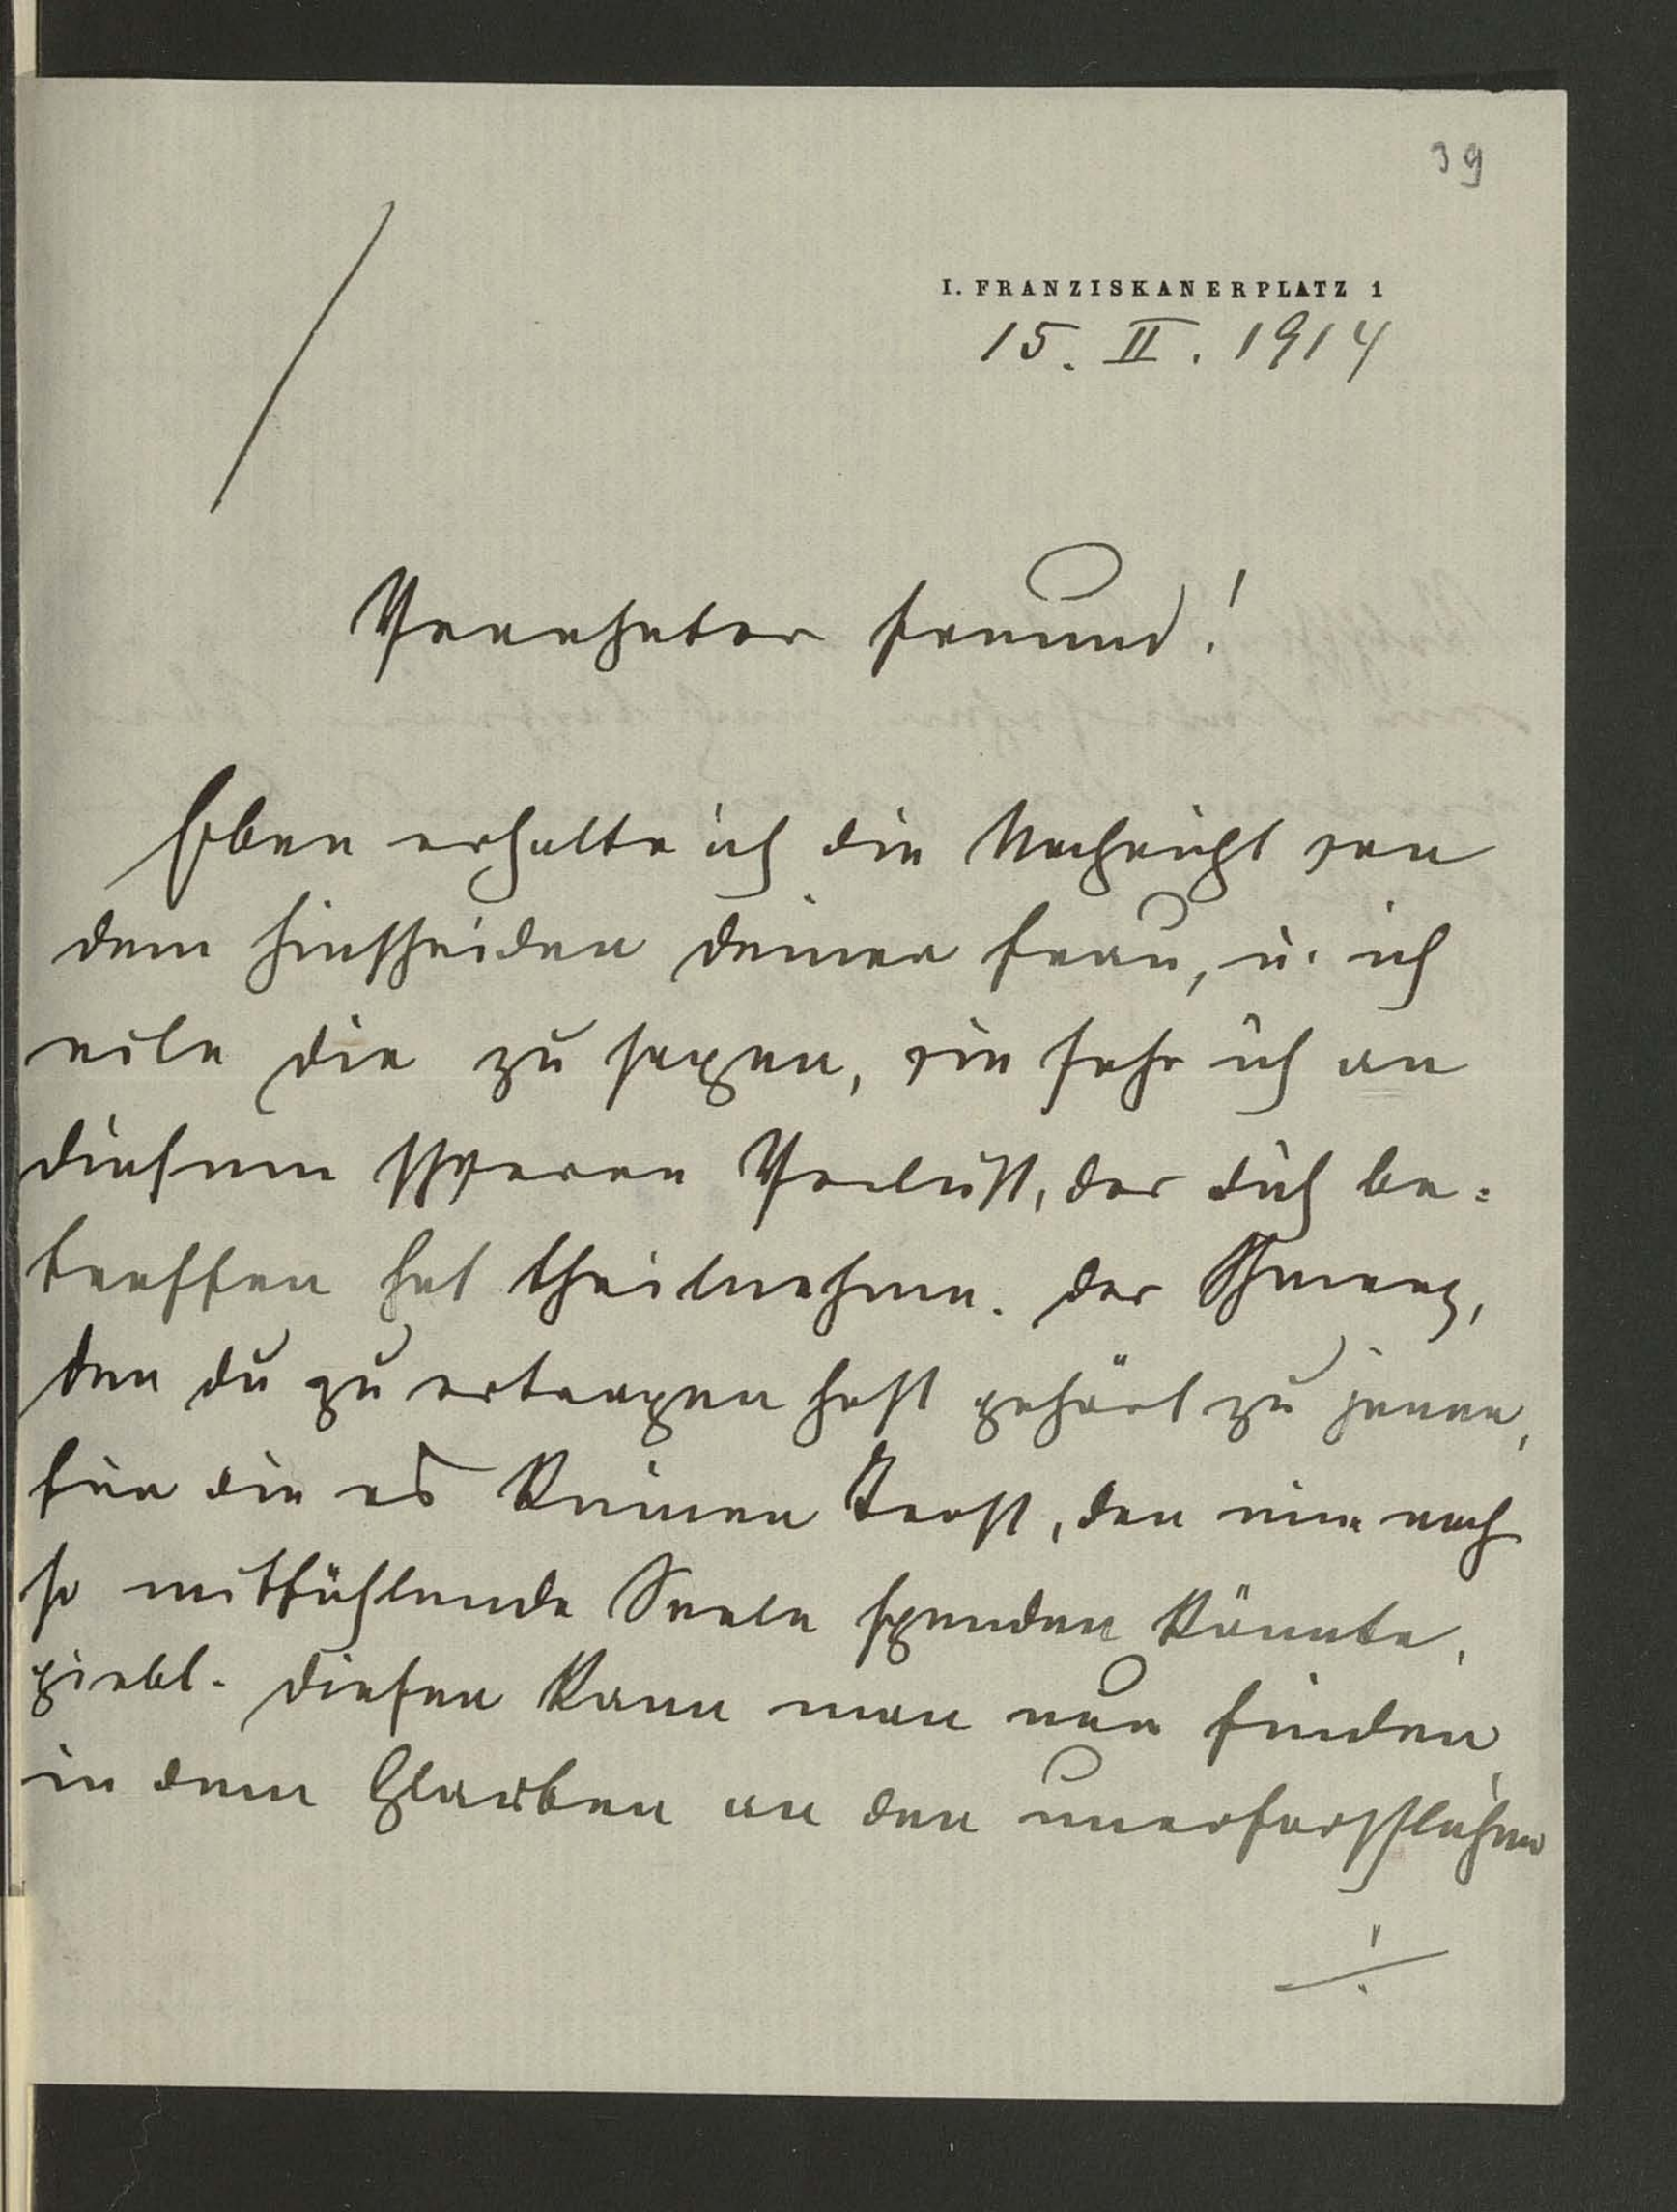 39
I. FRANZISKANERPLATZ 1
15. II. 1914
Verehrter Freund!
Eben erhalte ich die Nachricht von
dem Hinscheiden deiner Frau, u. ich
eile dir zu sagen, wie sehr ich an
diesem schweren Verlust, der dich be=
troffen hat theilnehme. Der Schmerz,
den du zu ertragen hast gehört zu jenen,
für die es keinen Trost, den eine noch
so mitfühlende Seele spenden könnte,
giebt. Diesen kann man nur finden
in dem Glauben an den unerforschlichen
./.